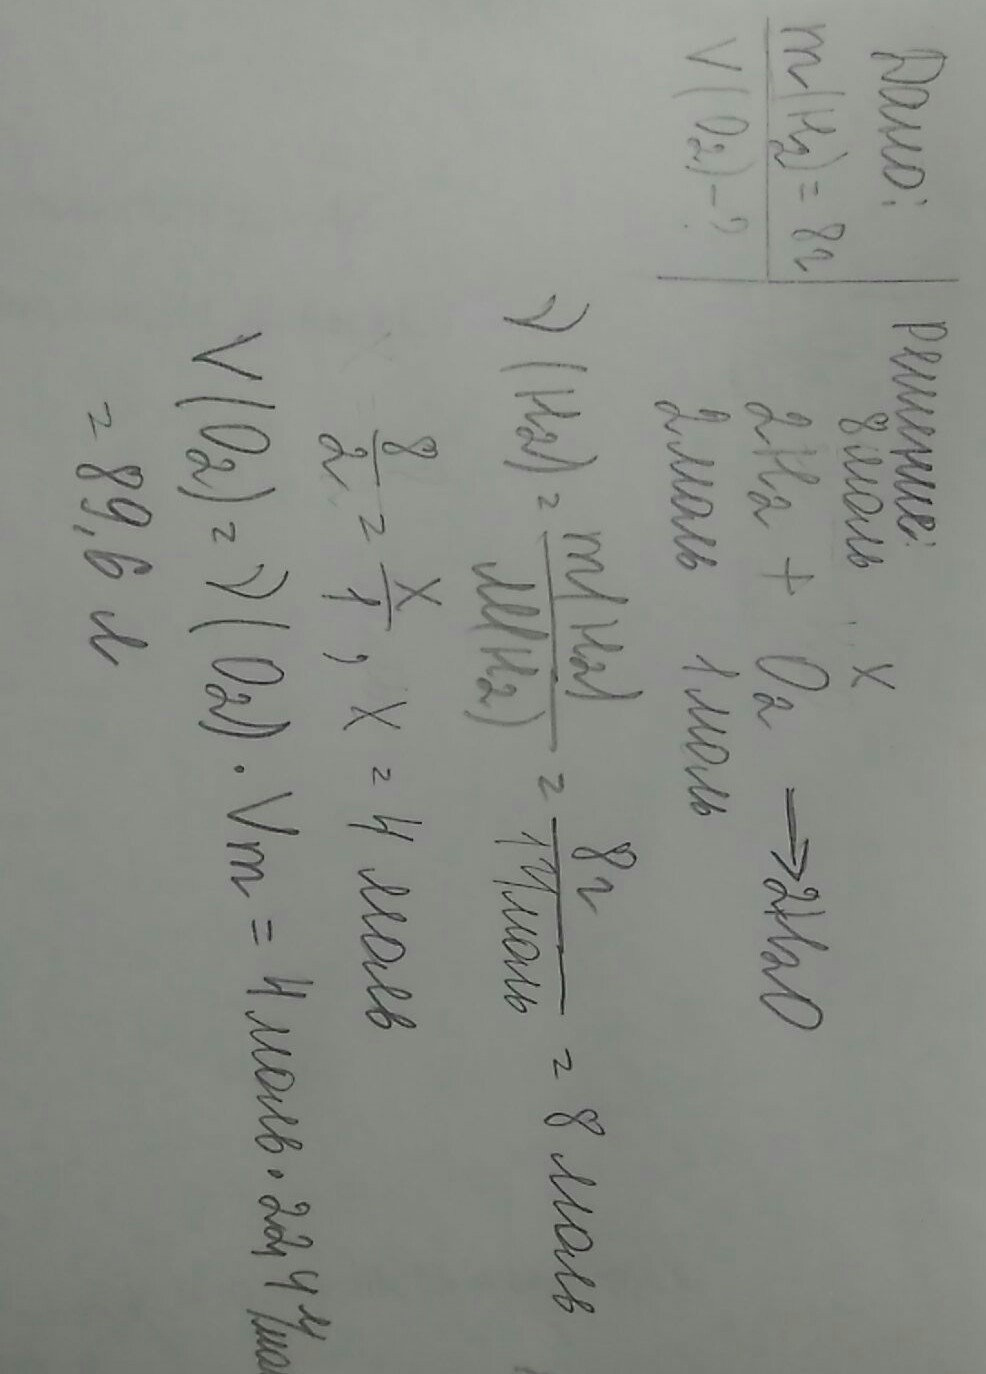 Дано:
m(H2) = 8г
V(O2) - ?
Решение:
8моль X
2H2 + O2 → 2H2O
2моль 1моль
ν(H2) = m(H2) / M(H2) = 8г / 1г/моль = 8 моль
8/2 = X/1, X = 4 моль
V(O2) = ν(O2) · Vm = 4 моль · 22,4 л/мо
= 89,6 л